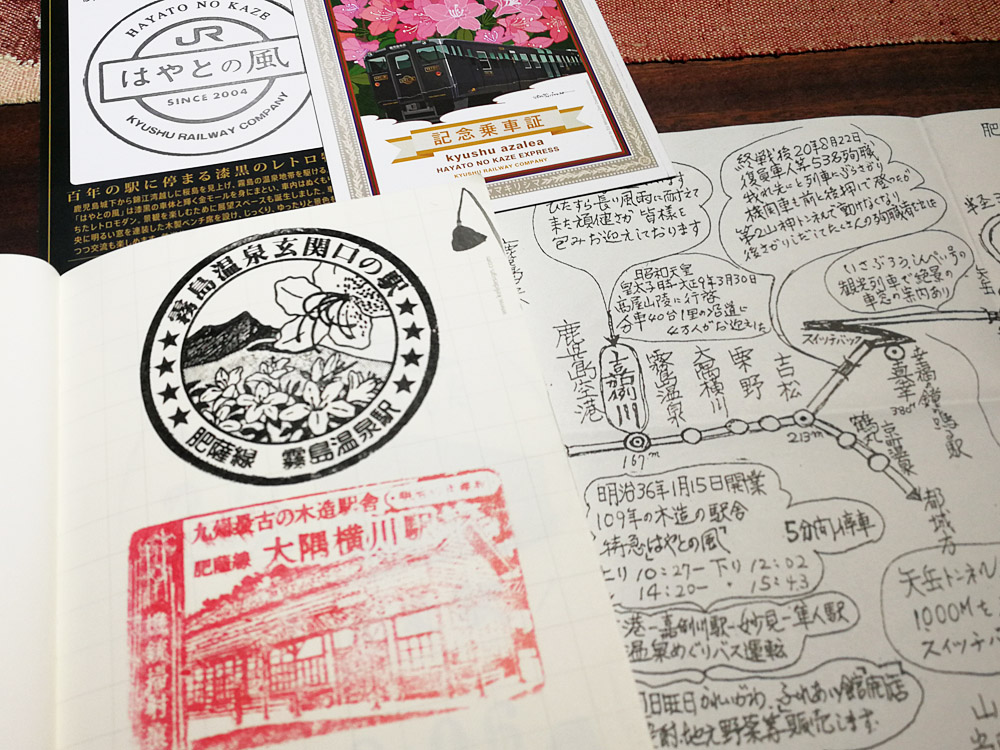 HAYATO NO KAZE
JR
はやとの風
SINCE 2004
KYUSHU RAILWAY COMPANY
百年の駅に停まる漆黒のレトロ
鹿児島城下から錦江湾越しに桜島を見上げ、霧島の温泉地帯を駆ける
「はやとの風」は漆黒の車体と輝く金モールを身にまとい、車内はぬくも
ちたレトロモダン。景観を楽しむために展望スペースも誕生しました。
央に明るい窓を連装した木製ベンチ席を設け、じっくり、ゆったりと景色
つつ交流も楽しめ
記念乗車証
kyushu azalea
HAYATO NO KAZE EXPRESS
KYUSHU RAILWAY COMPANY
霧島温泉玄関口の駅
肥薩線 霧島温泉駅
九州最古の木造駅舎
肥薩線 大隅横川駅
ます
ひたすら長い風雨に耐えて
また頑健さが皆様を
包みお迎えしております
終戦後20年8月22日
復員軍人等53名殉職
我れ先にと列車にぶらさがり
機関車も前と後押しで登ったが
第2山神トンネルで動けなくなり
昭和天皇
皇太子日時大正9年3月30日
高屋山陵に行啓
分車40台1里の沿道に
4万人がお迎えた
いさぶろう、しんぺい号の
観光列車で絶景の
車窓の案内あり
スイッチバック
鹿児島空港
嘉例川
霧島温泉
大隅横川
栗野
吉松
真幸
380m
幸福の鐘の鳴る駅
鶴丸
京町温泉
都城方
167m
213m
明治36年1月15日開業
109年の木造の駅舎
特急「はやとの風」
5分有り停車
上り 10:27ー下り 12:02
14:20ー 〃 15:43
港ー嘉例川駅ー妙見ー隼人駅
温泉めぐりバス運転
日旺日かれいがわ、ふれあい館開店
地元野菜等販売します。
矢岳トンネル
1000M
スイッチバ
肥
山